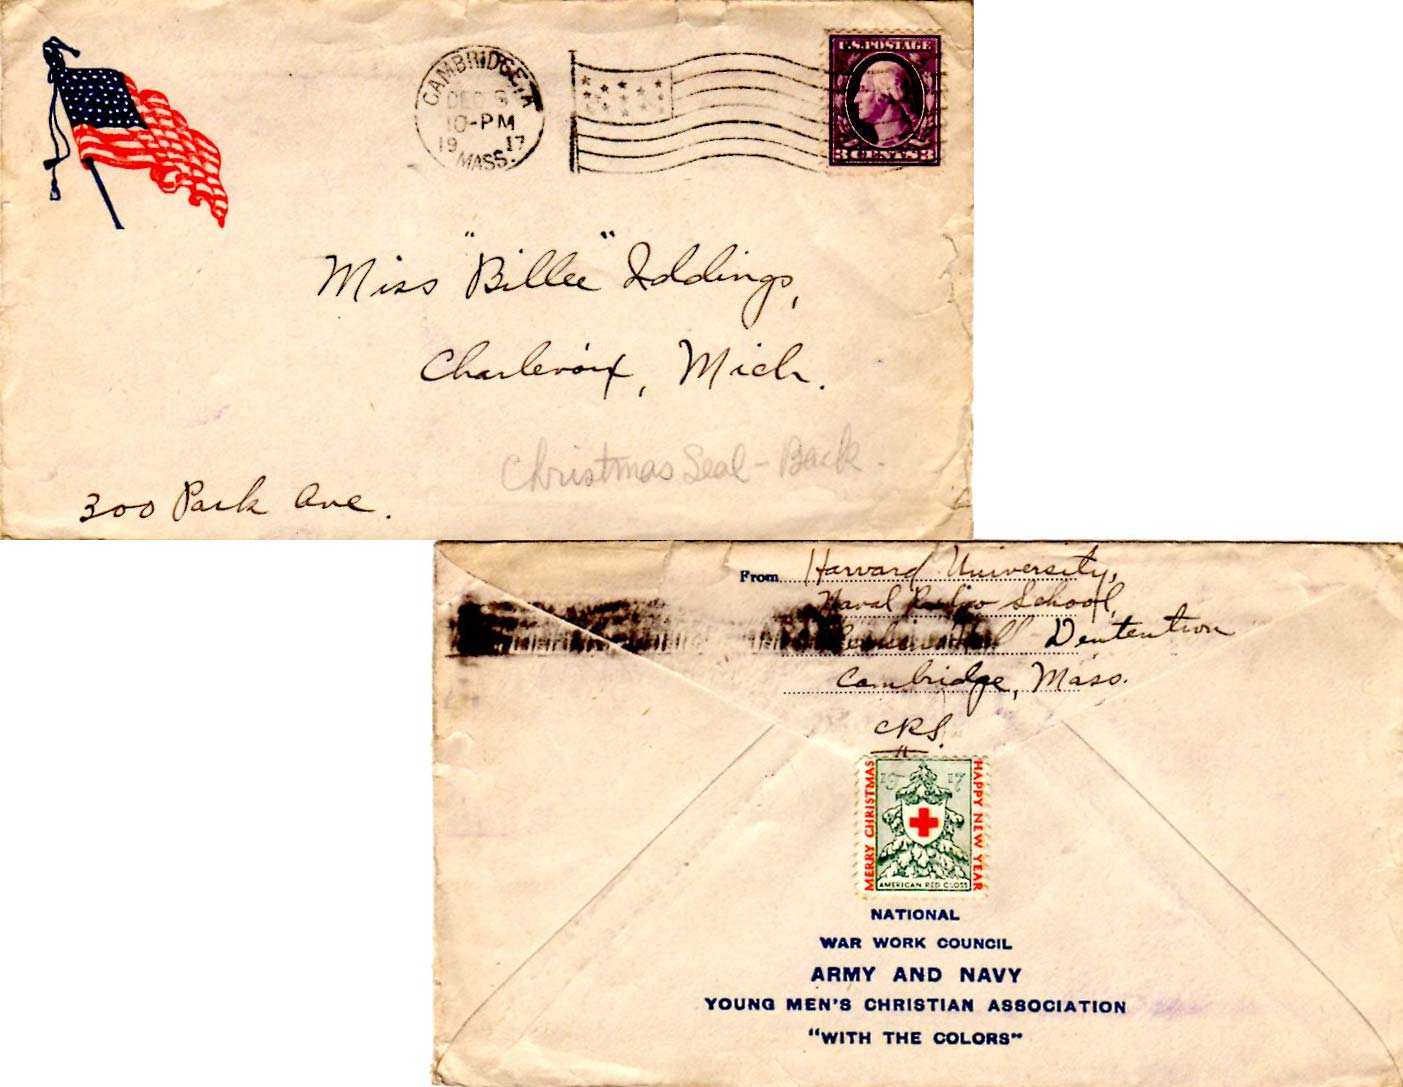 CAMBRIDGE, A
DEC 9
10-PM
19 17
MASS.
U.S. POSTAGE
3 CENTS 3
Miss "Billee" Iddings,
Charlevoix, Mich.
Christmas Seal - Back.
300 Park Ave.
From Harvard University,
Naval Radio School,
Hall Dentention
Cambridge, Mass.
CRS.
1917
MERRY CHRISTMAS
HAPPY NEW YEAR
AMERICAN RED CROSS
NATIONAL
WAR WORK COUNCIL
ARMY AND NAVY
YOUNG MEN'S CHRISTIAN ASSOCIATION
"WITH THE COLORS"